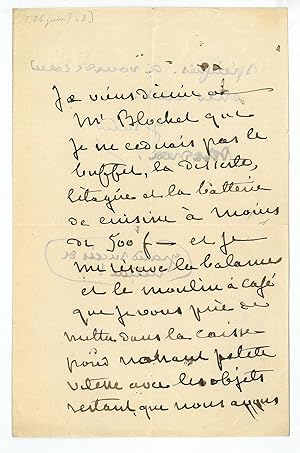 Je viens d'écrire à
Mr Blochet que
je ne cedrais pas le
buffet, la desserte,
l'étagère et la batterie
de cuisine à moins
de 500 f — et je
me réserve la balance
et le moulin à café
que je vous prie de
mettre dans la caisse
pour Nohant petite
vitesse avec les objets
restant, que nous avons